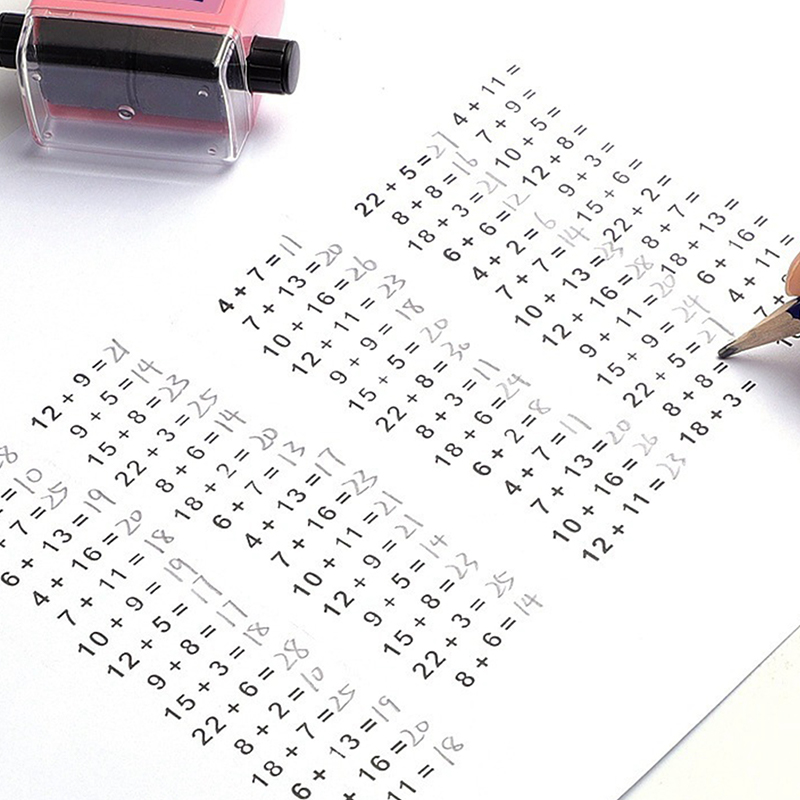 28
= 10
+ 7 = 25
6 + 13 = 19
4 + 16 = 20
7 + 11 = 18
10 + 9 = 19
12 + 5 = 17
9 + 8 = 17
15 + 3 = 18
22 + 6 = 28
8 + 2 = 10
18 + 7 = 25
6 + 13 = 19
+ 16 = 20
11 = 18
12 + 9 = 21
9 + 5 = 14
15 + 8 = 23
22 + 3 = 25
8 + 6 = 14
18 + 2 = 20
6 + 7 = 13
4 + 13 = 17
7 + 16 = 23
10 + 11 = 21
12 + 9 = 21
9 + 5 = 14
15 + 8 = 23
22 + 3 = 25
8 + 6 = 14
4 + 7 = 11
7 + 13 = 20
10 + 16 = 26
12 + 11 = 23
9 + 9 = 18
15 + 5 = 20
22 + 8 = 30
8 + 3 = 11
18 + 6 = 24
6 + 2 = 8
4 + 7 = 11
7 + 13 = 20
10 + 16 = 26
12 + 11 = 23
22 + 5 = 27
8 + 8 = 16
18 + 3 = 21
6 + 6 = 12
4 + 2 = 6
7 + 7 = 14
10 + 13 = 23
12 + 16 = 28
9 + 11 = 20
15 + 9 = 24
22 + 5 = 27
8 + 8 =
18 + 3 =
4 + 11 =
7 + 9 =
10 + 5 =
12 + 8 =
9 + 3 =
15 + 6 =
22 + 2 =
8 + 7 =
18 + 13 =
6 + 16 =
4 + 11 =
7 +